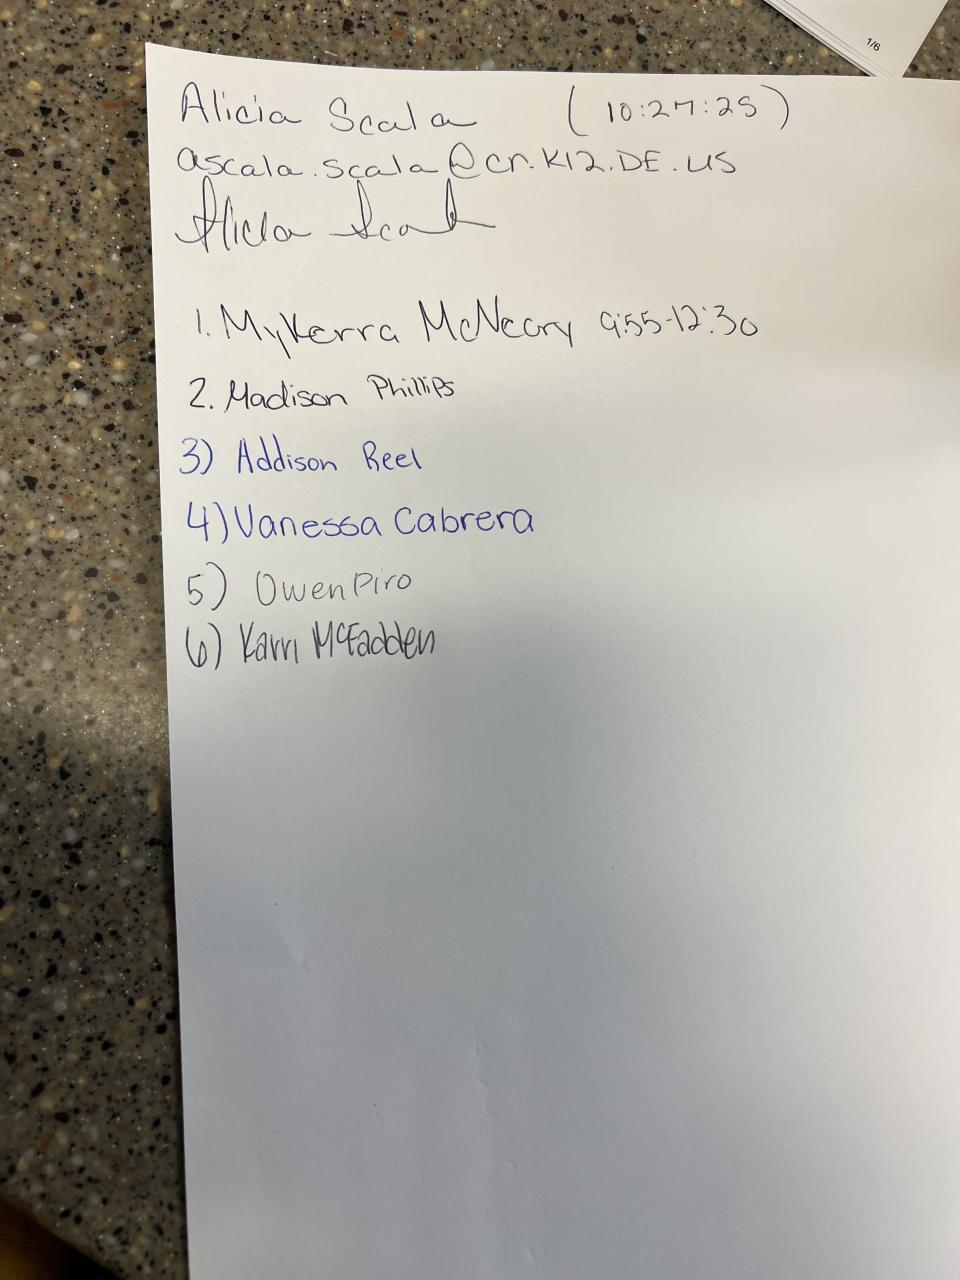 1/6
Alicia Scala (10:27:25)
ascala.scala@cr.K12.DE.US
Alicia Scala
1. MyKerra McNeary 9:55-12:30
2. Madison Phillips
3) Addison Reel
4) Vanessa Cabrera
5) Owen Piro
6) Karri McFadden